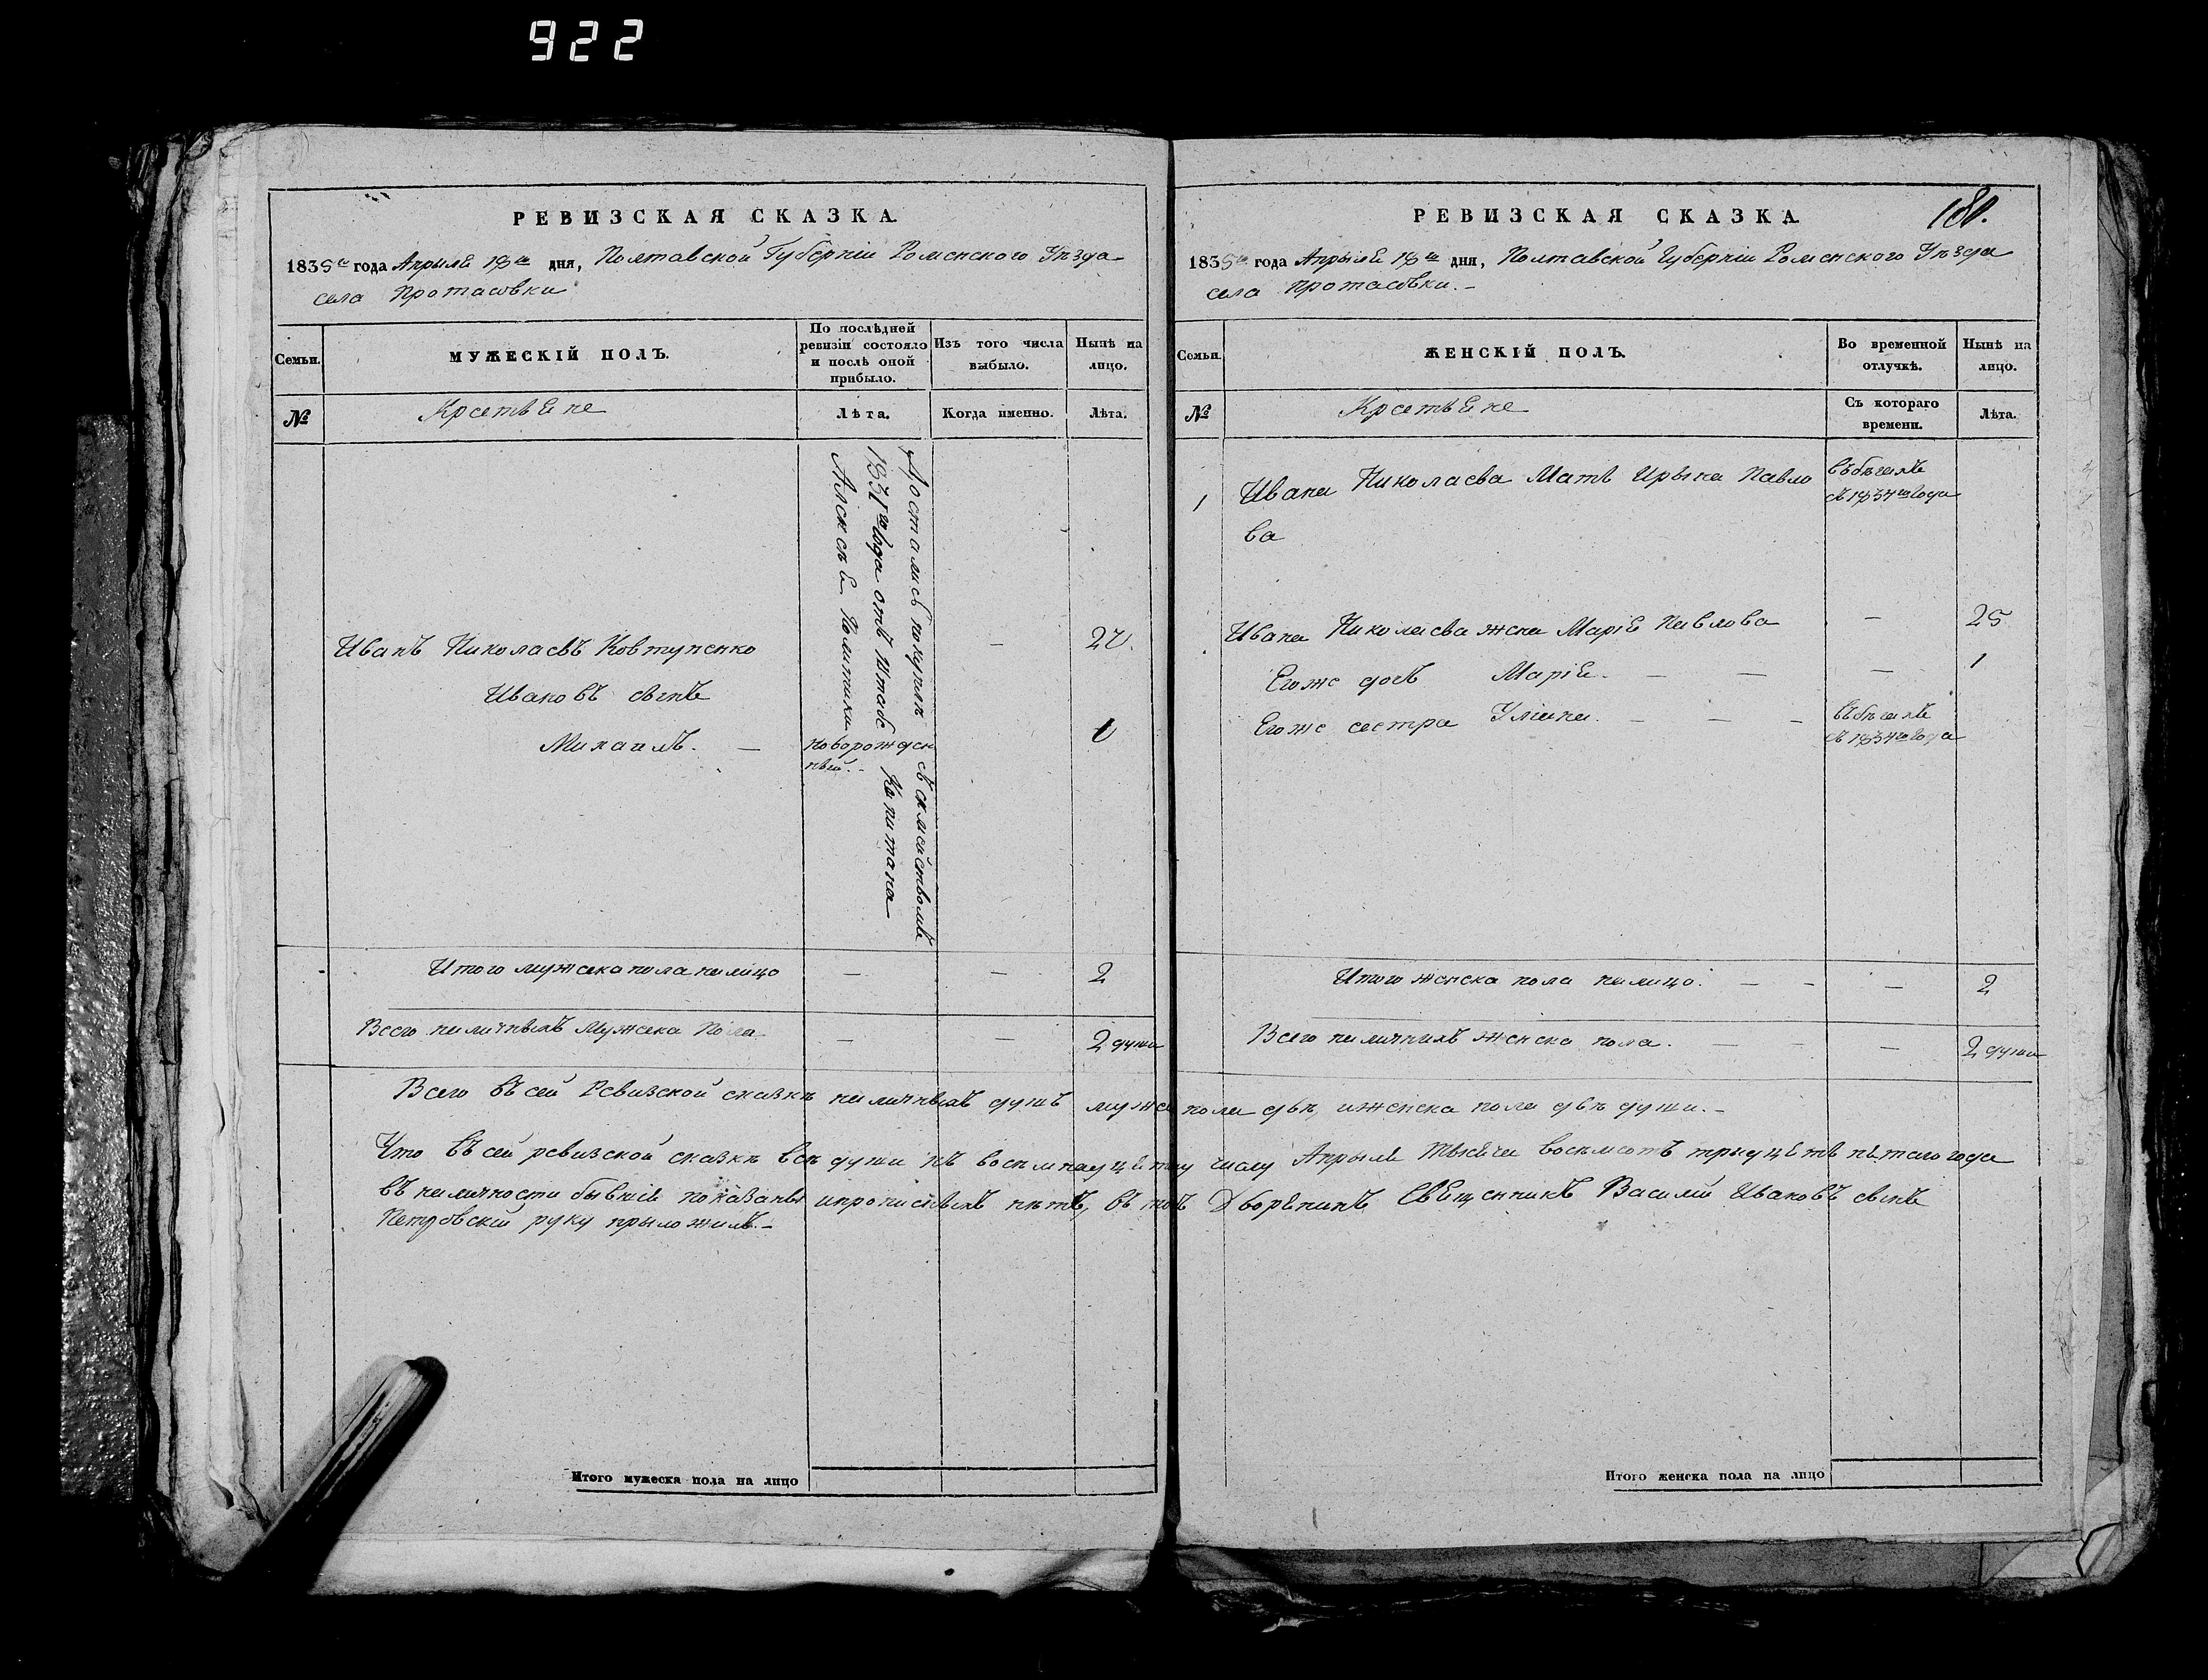 922
РЕВИЗСКАЯ СКАЗКА.
1835го года Апрыля 18го дня, Полтавской Губерніи Роменского Уѣзда
села Протасовки
Семьи.
МУЖЕСКІЙ ПОЛЪ.
По послѣдней
ревизіи состояло
и послѣ оной
прибыло.
Изъ того числа
выбыло.
Нынѣ на
лицо.
№
Крстьяне
Лѣта.
Когда именно.
Лѣта.
Достались покупкѣ съ семействомъ
1831го года отъ Штабс Капитана
Алексѣя Политики
Иванъ Николаевъ Ковтуненко
—
Ивановъ сынъ
Михаилъ. —
новорожден
ный. -
Итого мужска пола налицо
—
—
2
Всего наличныхъ Мужска Пола
—
—
2 души
РЕВИЗСКАЯ СКАЗКА.
1835го года Апрыля 18го дня, Полтавской Губерніи Роменского Уѣзда
села Протасовки. -
Семьи.
ЖЕНСКІЙ ПОЛЪ.
Во временной
отлучкѣ.
Нынѣ на
лицо.
№
Крстьяне
Съ котораго
времени.
Лѣта.
1
Ивана Николаева Мать Ирына Павло
ва
въ бѣгахъ
съ 1834го года
Ивана Николаева жена Марія Павлова
—
25
Егоже дочь Марія. — —
—
1
Егоже сестра Уліана. — — —
въ бѣгахъ
съ 1834го года
Итого женска пола налицо. — -
—
2
Всего наличныхъ женска пола. — -
—
2 души
Всего въ сей Ревизской сказкѣ наличныхъ душъ мужска пола двѣ, иженска пола двѣ души. -
Что въ сей ревизской сказкѣ всѣ души къ восемнадцятому числу Апрыля Мѣсяца восемсотъ трыдцять пятого года
въ наличности бывшія показаны ипрописныхъ нѣтъ, въ томъ Дворянинъ Священникъ Василій Ивановъ сынъ
Петровскій руку прыложилъ. -
Итого мужеска пола на лицо
Итого женска пола на лицо